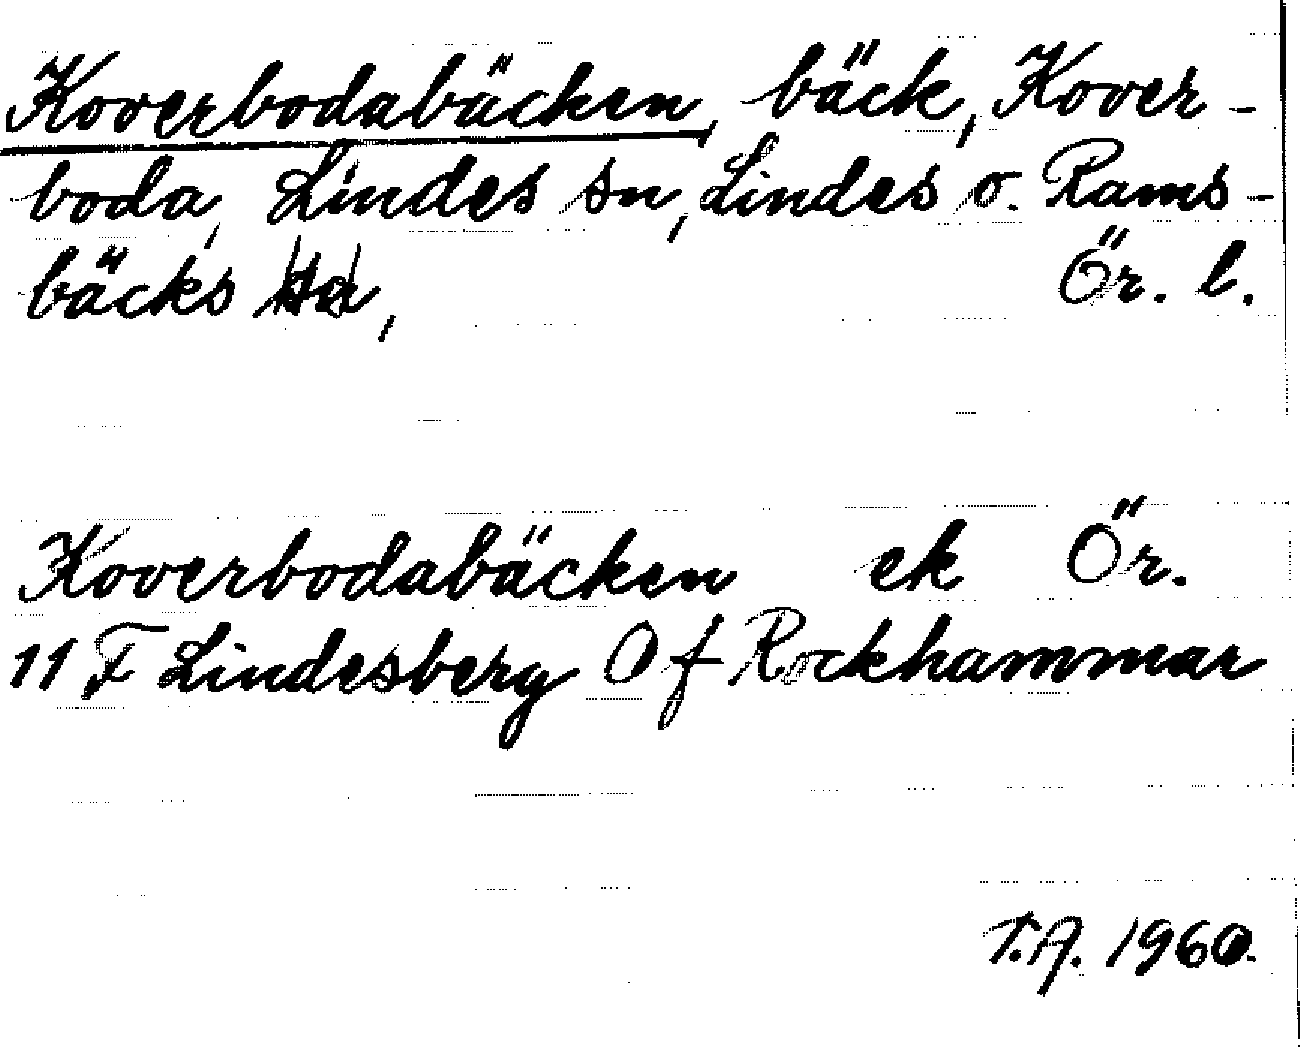 Koverbodabäcken, bäck, Kover-
boda, Lindes sn, Lindes o. Rams-
bäcks hd, Ör. l.
Koverbodabäcken ek Ör.
11 F Lindesberg Of Rockhammar
T.A. 1960.